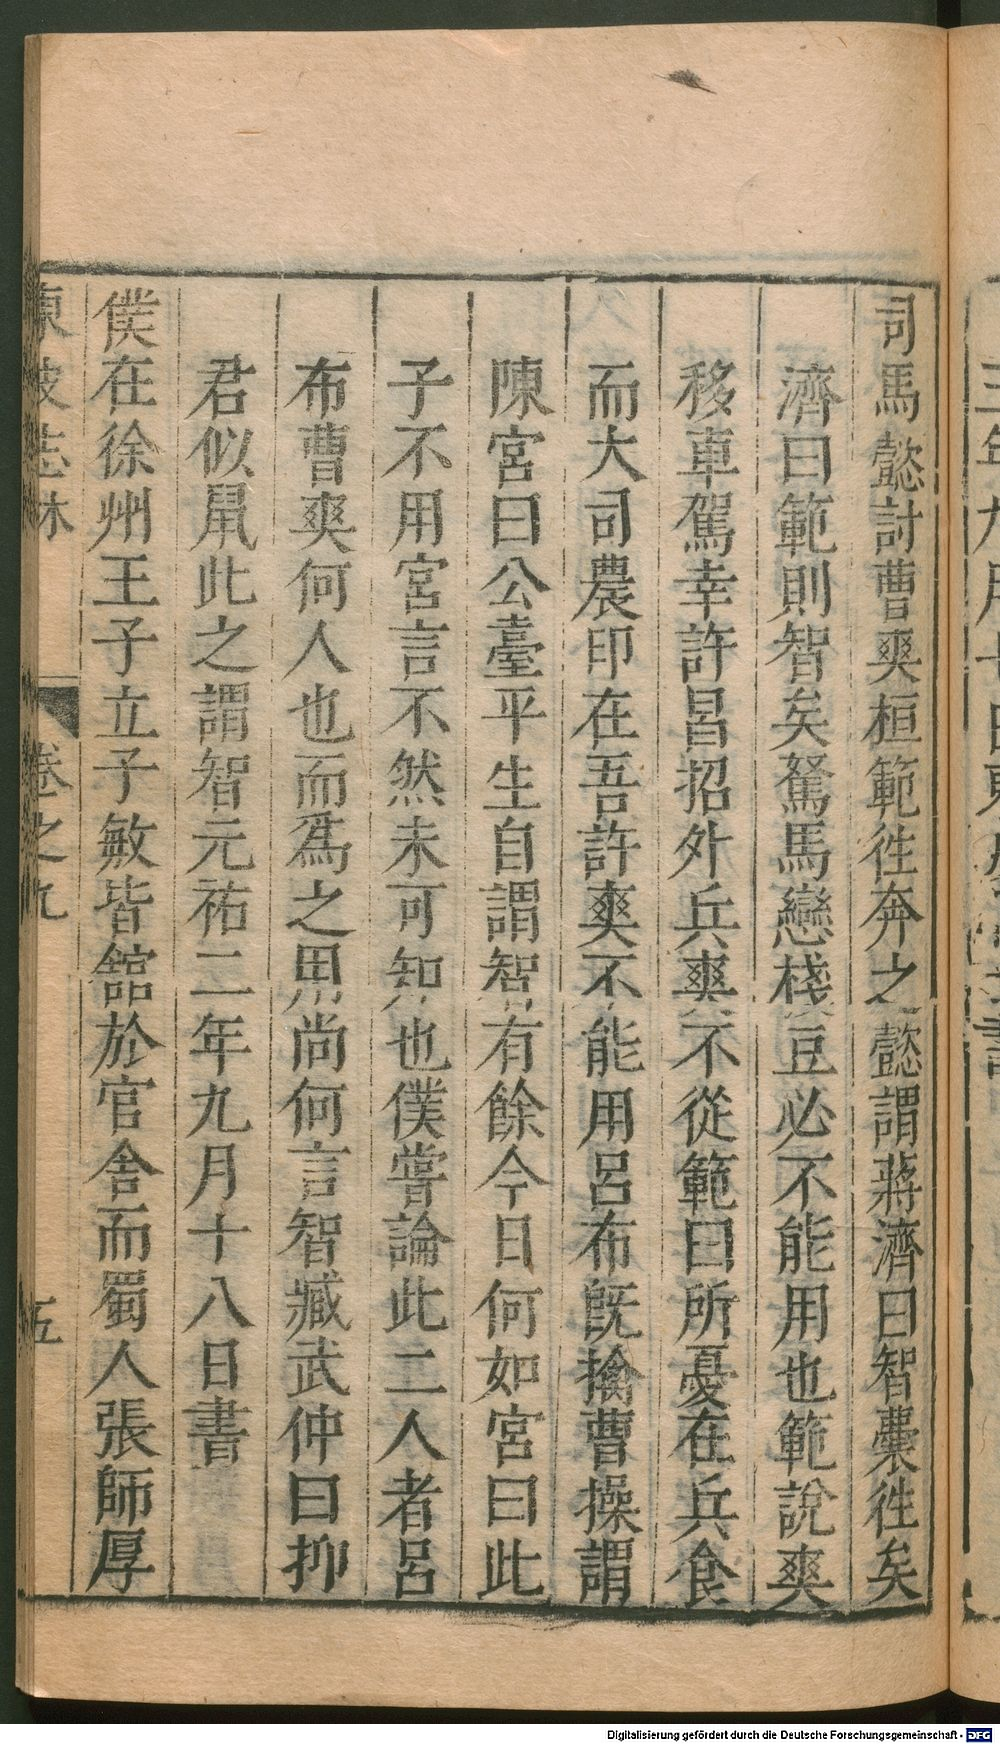 司馬懿討曹爽桓範徃奔之懿謂蔣濟曰智囊徃矣
濟曰範則智矣駑馬戀棧豆必不能用也範說爽
移車駕幸許昌招外兵爽不從範曰所憂在兵食
而大司農印在吾許爽不能用呂布旣擒曹操謂
陳宮曰公臺平生自謂智有餘今日何如宮曰此
子不用宮言不然未可知也僕嘗論此二人者呂
布曹爽何人也而爲之用尚何言智臧武仲曰抑
君似鼠此之謂智元祐二年九月十八日書
僕在徐州王子立子敏皆舘於官舍而蜀人張師厚
東坡志林 卷之九 五
Digitalisierung gefördert durch die Deutsche Forschungsgemeinschaft - DFG